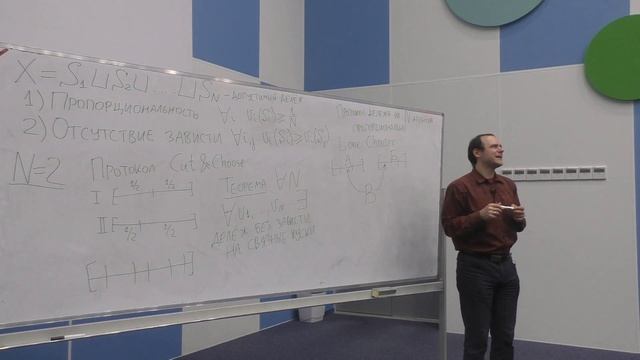 X = S₁ ⊔ S₂ ⊔ ... ⊔ S_N - допустимый делёж
1) Пропорциональность ∀i vᵢ(Sᵢ) ≥ 1/N
2) Отсутствие зависти ∀i,j vᵢ(Sᵢ) ≥ vᵢ(Sⱼ)
N=2 Протокол Cut & Choose
I 1/2 1/2
II 1/2 1/2
Теорема ∀N
∀v₁ ... v_N ∃
делёж без зависти
на связные куски
Протокол дележа на N
пропорциональный
Lone Chooser
A B
B